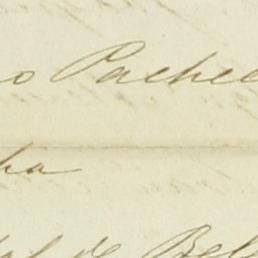 o Pachec
ha
al de Bel